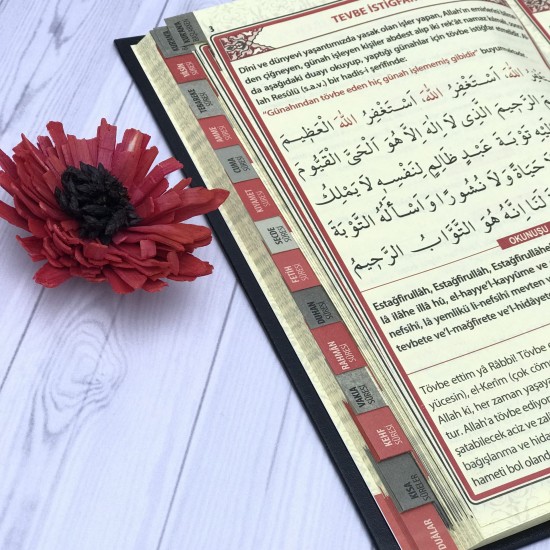 3
TEVBE İSTİĞFAR
Dini ve dünyevi yaşantımızda yasak olan işler yapan, Allah'ın emirlerini
den çiğneyen, günah işleyen kişiler abdest alıp iki rek'at namaz kılmalı,
da aşağıdaki duayı okuyup, yaptığı günahlar için tövbe istiğfar etmelidir. Al-
lah Resûlü (s.a.v.) bir hadis-i şerifinde:
"Günahından tövbe eden hiç günah işlememiş gibidir" buyurmuştur.
اَسْتَغْفِرُ اللهَ اَسْتَغْفِرُ اللهَ اَسْتَغْفِرُ اللهَ الْعَظِيمَ
الرَّحِيمَ الَّذِى لَا اِلٰهَ اِلَّا هُوَ الْحَىَّ الْقَيُّومَ
تَوْبَةَ عَبْدٍ ظَالِمٍ لِنَفْسِهِ لَا يَمْلِكُ
حَيَاةً وَلَا نُشُورًا وَاَسْأَلُهُ التَّوْبَةَ
لَنَا اِنَّهُ هُوَ التَّوَّابُ الرَّحِيمُ
OKUNUŞU
Estağfirullâh, Estağfirullâhe
lâ ilâhe illâ hû, el-hayye'l-kayyûme ve
nefsihî, lâ yemlikü li-nefsihî mevten
tevbete ve'l-mağfirete ve'l-hidâyet
Tövbe ettim yâ Râbbi! Tövbe
yücesin), el-Kerîm (çok cöm
Allah ki, her zaman yaşay
tur. Allah'a tövbe ediyor
şatabilecek aciz ve za
bağışlanma ve hida
hameti bol oland
YESİN SÛRESİ
TEBAREKE SÛRESİ
AMME SÛRESİ
CUMA SÛRESİ
KIYAMET SÛRESİ
SECDE SÛRESİ
FETİH SÛRESİ
DUHAN SÛRESİ
RAHMÂN SÛRESİ
VAKIA SÛRESİ
KEHF SÛRESİ
KISA SÛRELER
DUALAR